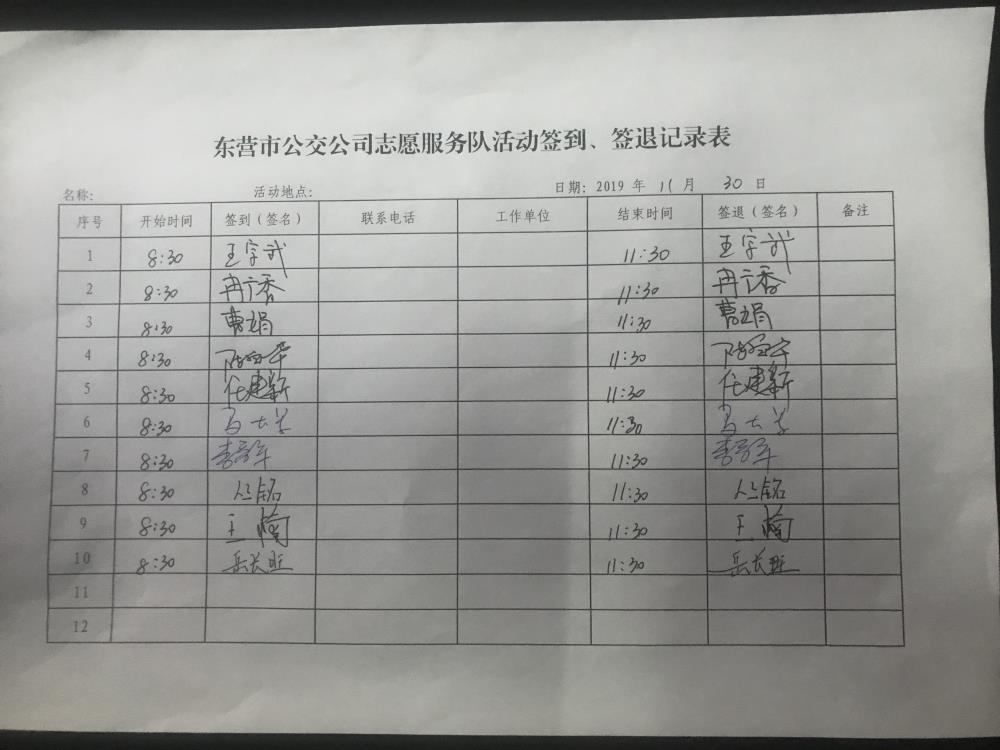 东营市公交公司志愿服务队活动签到、签退记录表
名称: 活动地点: 日期: 2019 年 11 月 30 日
序号 开始时间 签到（签名） 联系电话 工作单位 结束时间 签退（签名） 备注
1 8:30 王字武 11:30 王字武
2 8:30 冉广香 11:30 冉广香
3 8:30 曹娟 11:30 曹娟
4 8:30 11:30
5 8:30 任建新 11:30 任建新
6 8:30 11:30
7 8:30 11:30
8 8:30 丛铭 11:30 丛铭
9 8:30 王楠 11:30 王楠
10 8:30 岳长旺 11:30 岳长旺
11
12